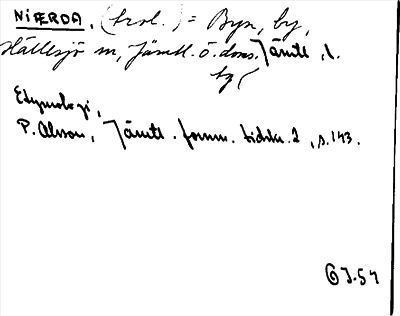 NIÆRDA. (trol.) = Byn, by,
Hällesjö sn, Jämtl. ö. doms. Jämtl. l.
by (
Etymologi,
P. Olsson, Jämtl. fornm. tidskr. 2, s. 143.
OJ-54